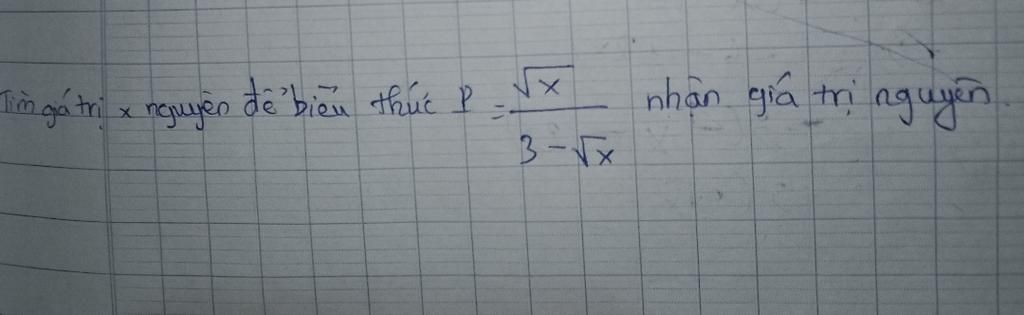 Tìm giá trị x nguyên để biểu thức P = √x / (3 - √x) nhận giá trị nguyên.